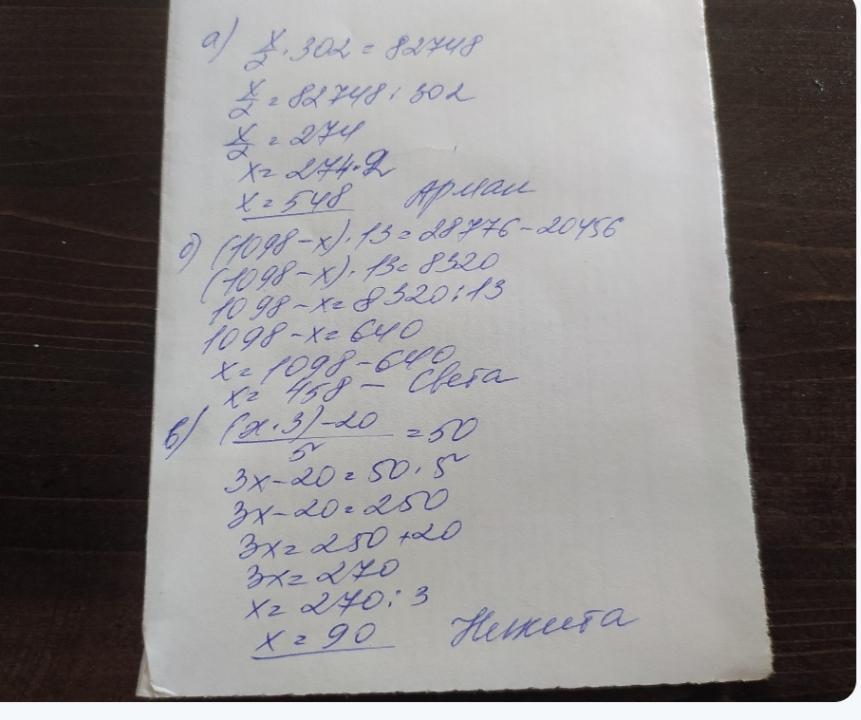 а) x/2 · 302 = 82748
x/2 = 82748 : 302
x/2 = 274
x = 274 · 2
x = 548 Арман
б) (1098 - x) · 13 = 28776 - 20456
(1098 - x) · 13 = 8320
1098 - x = 8320 : 13
1098 - x = 640
x = 1098 - 640
x = 458 - Света
в) ((x · 3) - 20)/5 = 50
3x - 20 = 50 · 5
3x - 20 = 250
3x = 250 + 20
3x = 270
x = 270 : 3
x = 90 Никита